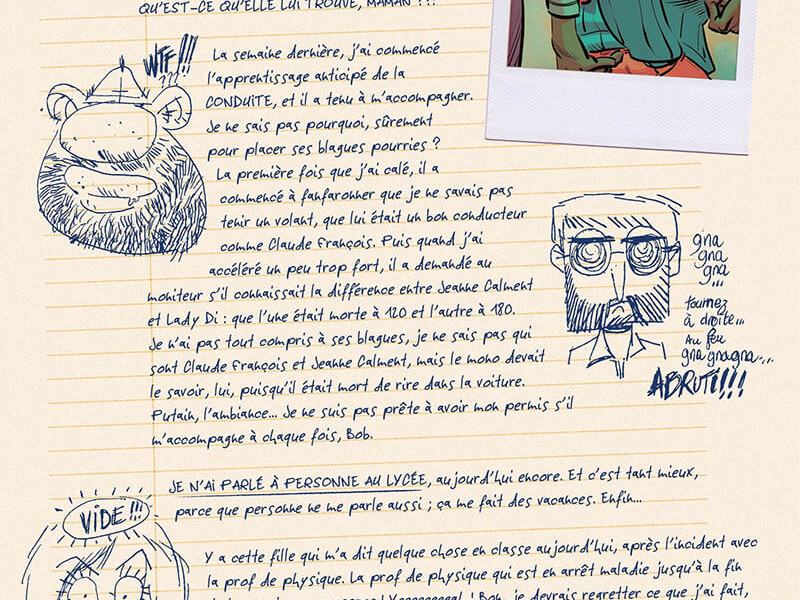 QU'EST-CE QU'ELLE LUI TROUVE, MAMAN ?!!
WTF!!!
???
La semaine dernière, j'ai commencé
l'apprentissage anticipé de la
CONDUITE, et il a tenu à m'accompagner.
Je ne sais pas pourquoi, sûrement
pour placer ses blagues pourries ?
La première fois que j'ai calé, il a
commencé à fanfaronner que je ne savais pas
tenir un volant, que lui était un bon conducteur
comme Claude François. Puis quand j'ai
accéléré un peu trop fort, il a demandé au
moniteur s'il connaissait la différence entre Jeanne Calment
et Lady Di : que l'une était morte à 120 et l'autre à 180.
Je n'ai pas tout compris à ses blagues, je ne sais pas qui
sont Claude François et Jeanne Calment, mais le mono devait
le savoir, lui, puisqu'il était mort de rire dans la voiture.
Putain, l'ambiance... Je ne suis pas prête à avoir mon permis s'il
m'accompagne à chaque fois, Bob.
gna
gna
gna
...
tournez
à droite...
Au feu
gna gnagna...
ABRUTI!!!
JE N'AI PARLÉ À PERSONNE AU LYCÉE, aujourd'hui encore. Et c'est tant mieux,
parce que personne ne me parle aussi ; ça me fait des vacances. Enfin...
VIDE!!!
Y a cette fille qui m'a dit quelque chose en classe aujourd'hui, après l'incident avec
la prof de physique. La prof de physique qui est en arrêt maladie jusqu'à la fin
! Bon, je devrais regretter ce que j'ai fait,